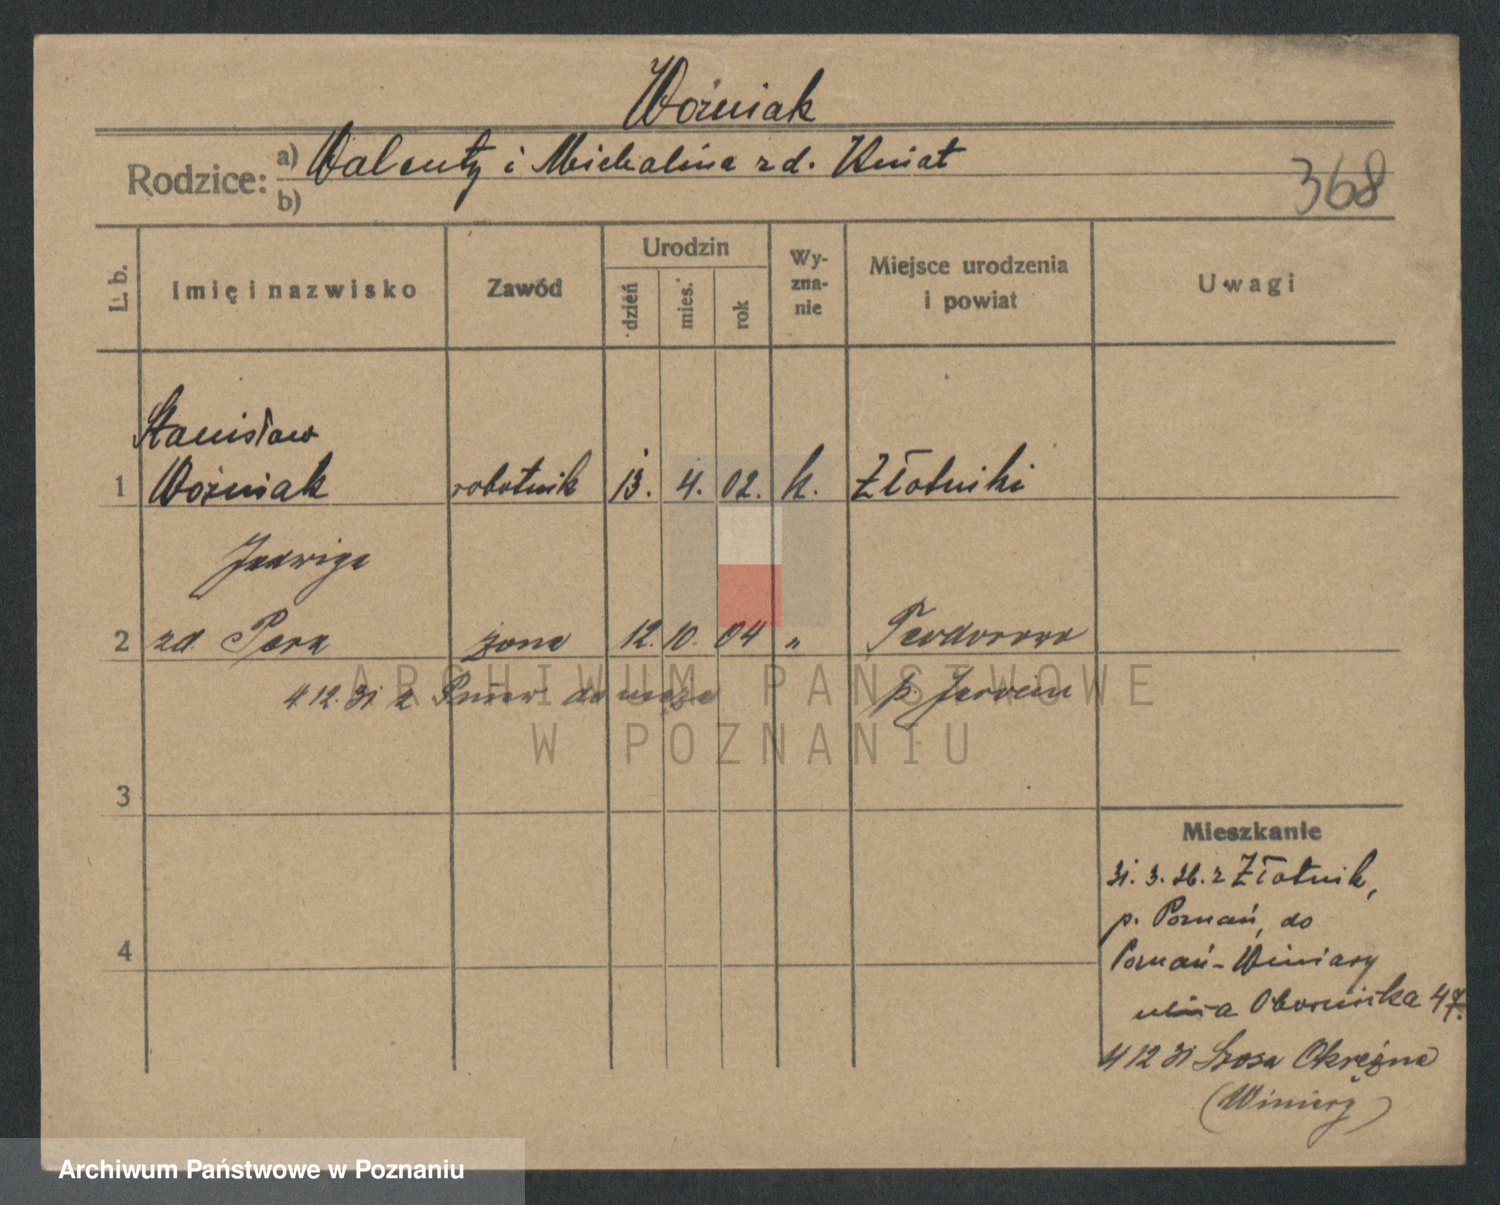 Woźniak
Rodzice: a) Walenty i Michalina zd. Kmiat
b)
368
L. b.
Imię i nazwisko
Zawód
Urodzin
dzień
mies.
rok
Wy-
zna-
nie
Miejsce urodzenia
i powiat
Uwagi
Stanisław
1 Woźniak robotnik 13. 4. 02. k. Złotniki
Jadwiga
2 zd. Pera żona 12. 10. 04 " Teodorowo
4 12. 31 z Pniew do męża p. Jarocin
ARCHIWUM PAŃSTWOWE
W POZNANIU
3
Mieszkanie
31. 3. 26. z Złotnik,
p. Poznań, do
4
Poznań-Winiary
ulica Obornicka 47.
4 12 31 Szosa Okrężna
(Winiary)
Archiwum Państwowe w Poznaniu